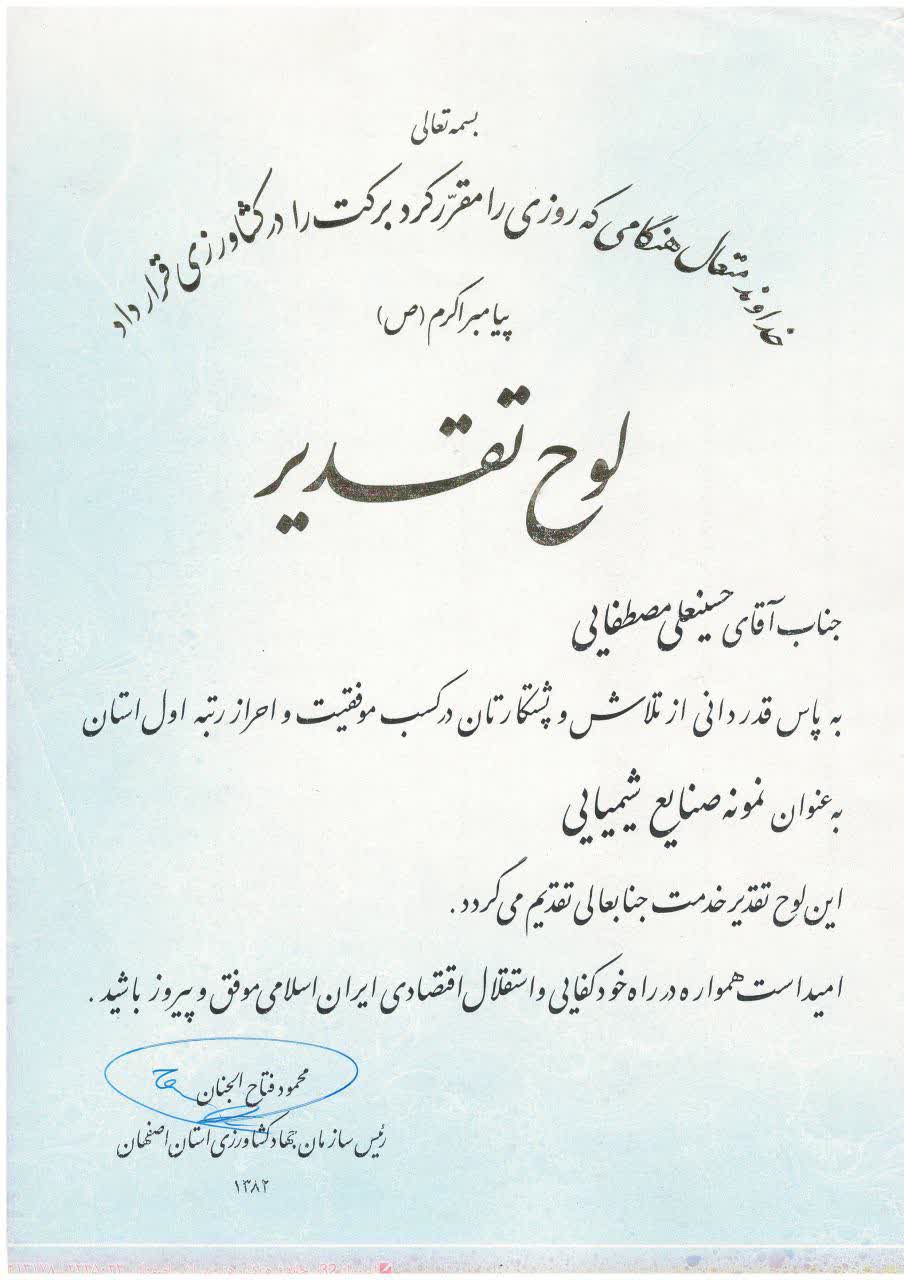 بسمه تعالی
خداوند متعال هنگامی که روزی را مقرّر کرد برکت را در کشاورزی قرار داد
پیامبر اکرم (ص)
لوح تقدیر
جناب آقای حسینعلی مصطفایی
به پاس قدردانی از تلاش و پشتکارتان در کسب موفقیت و احراز رتبه اول استان
به عنوان نمونه صنایع شیمیایی
این لوح تقدیر خدمت جنابعالی تقدیم می گردد.
امید است همواره در راه خودکفایی و استقلال اقتصادی ایران اسلامی موفق و پیروز باشید.
محمود فتاح الجنان
رئیس سازمان جهاد کشاورزی استان اصفهان
۱۳۸۲